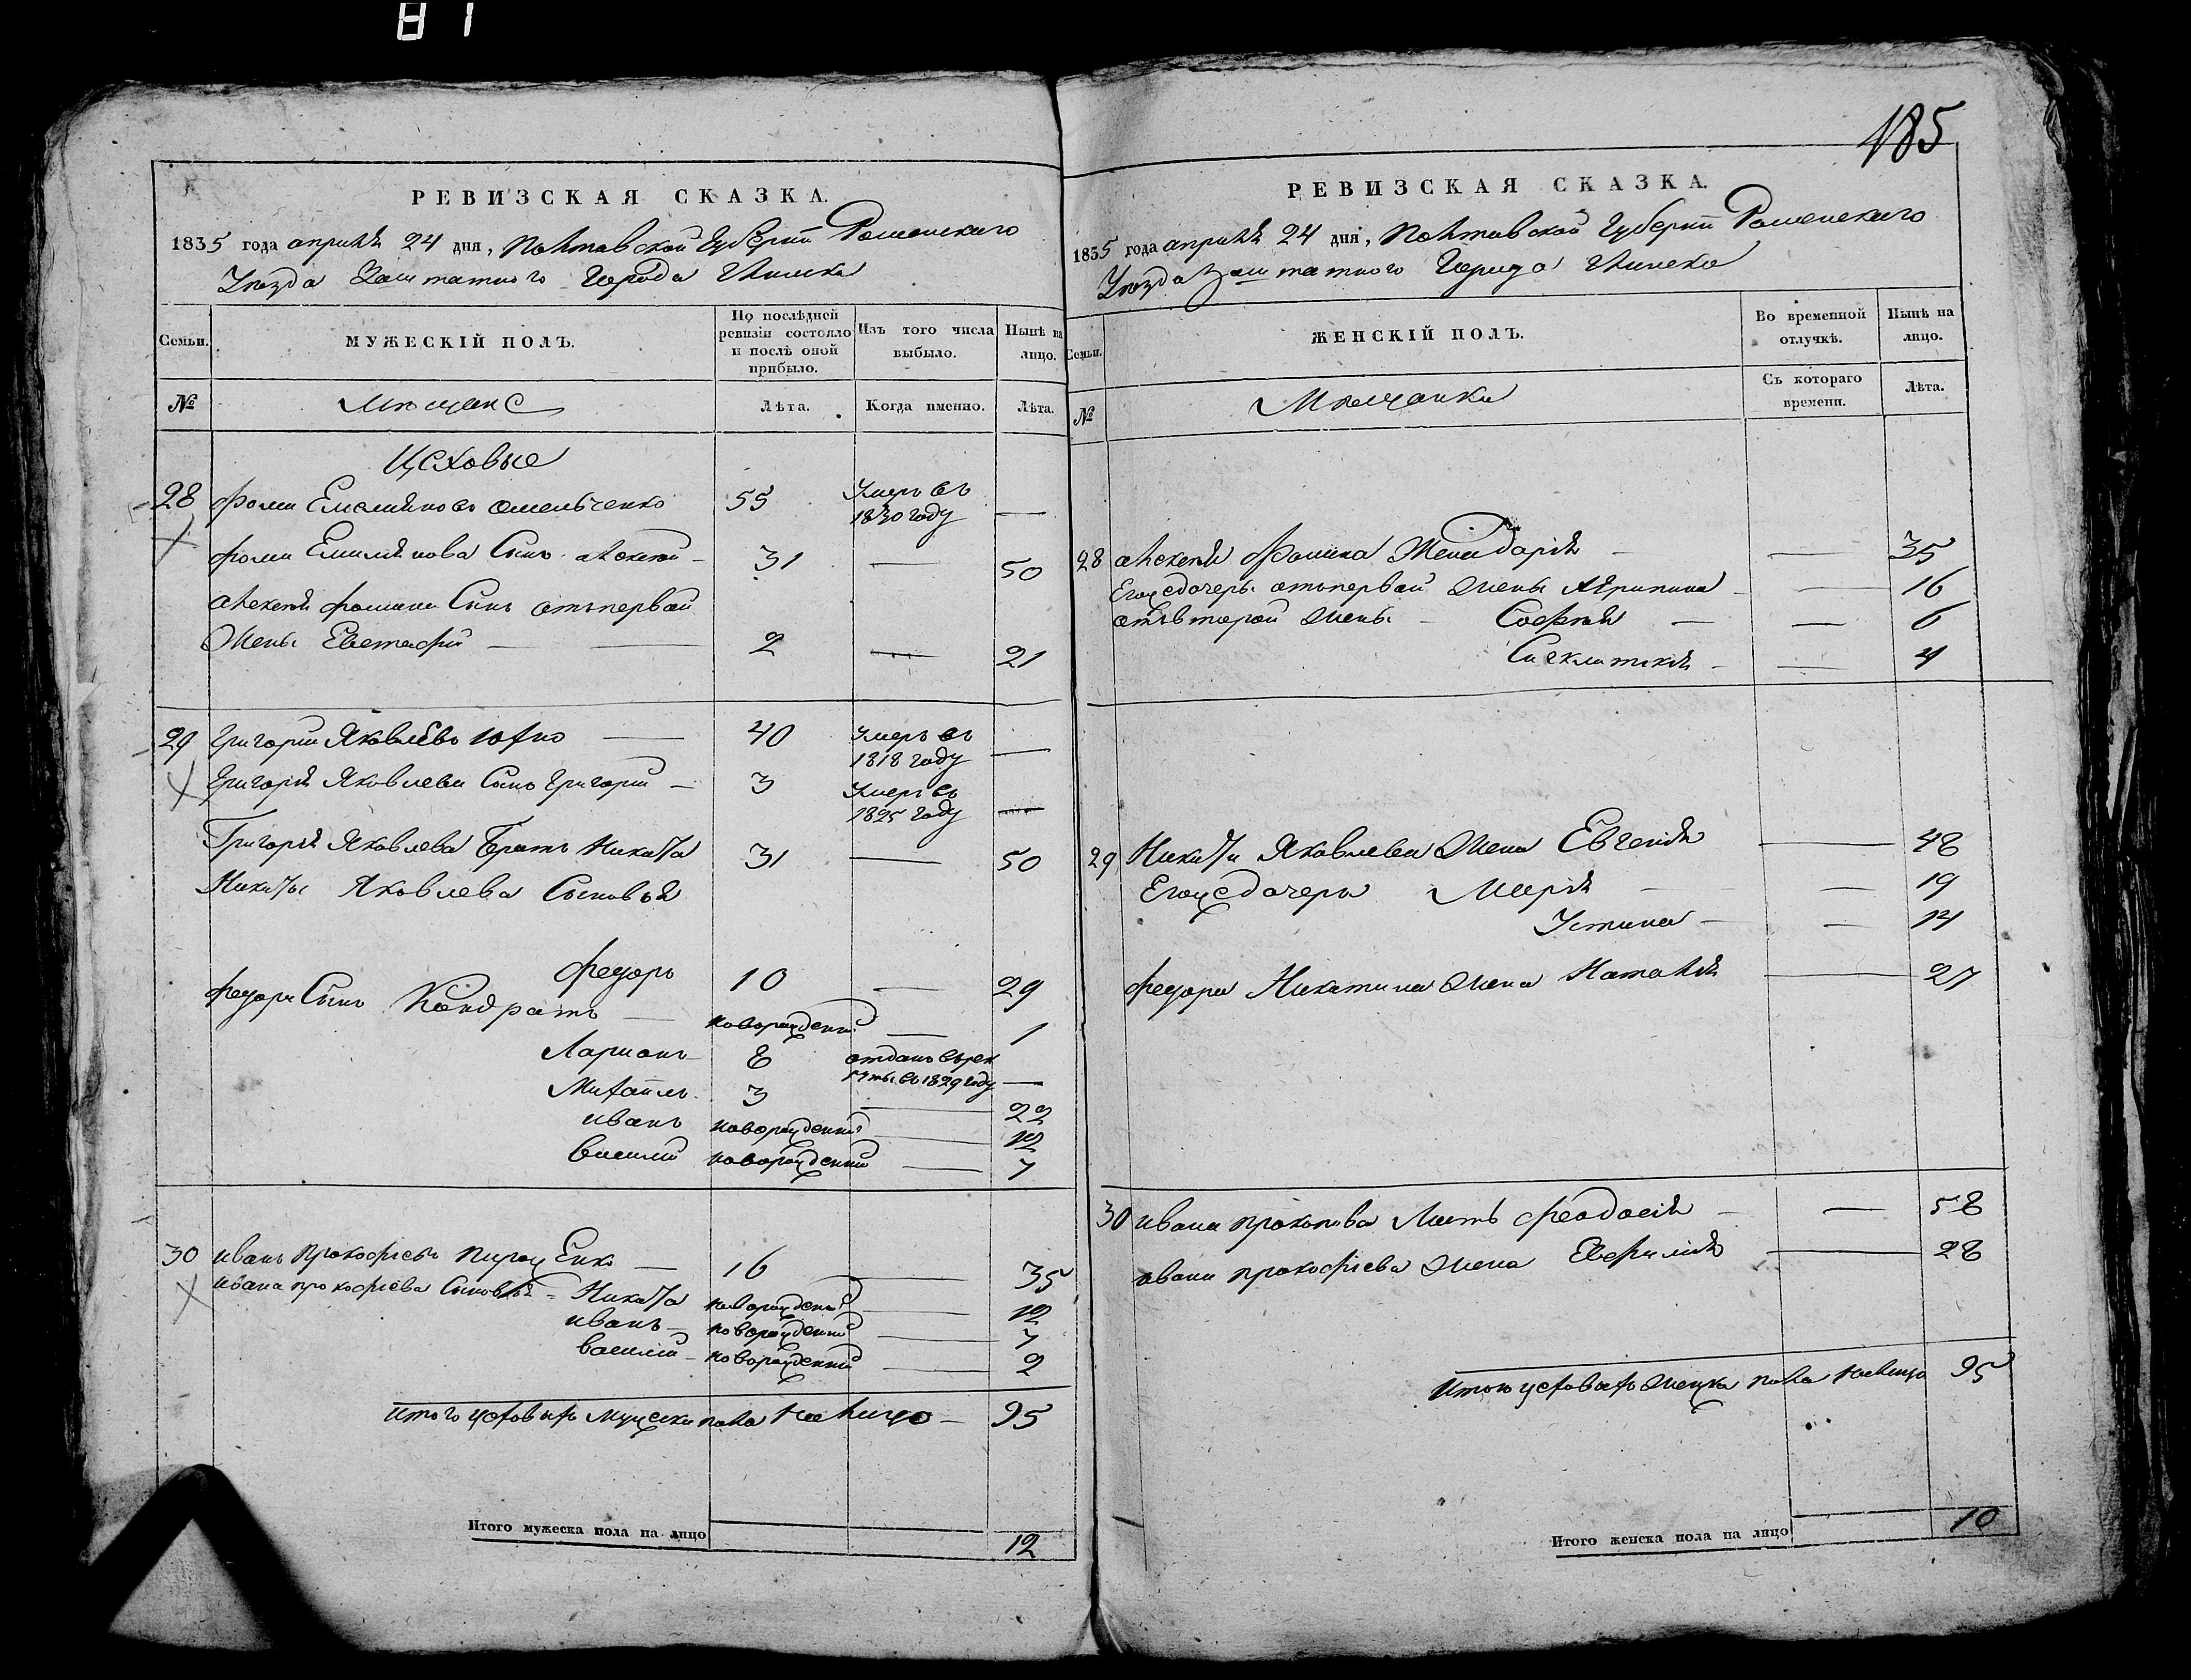 81
РЕВИЗСКАЯ СКАЗКА.
1835 года апреля 24 дня, Полтавской губерніи Роменского
Уезда Заштатного Города Глинска
Семьи.
МУЖЕСКІЙ ПОЛЪ.
По послѣдней ревизіи состояло и послѣ оной прибыло.
Изъ того числа выбыло.
Нынѣ на лицо.
№
Мещане
Лѣта.
Когда именно.
Лѣта.
Цеховые
28 Фома Емелиановъ Омельченко 55 Умеръ въ 1830 году —
Фомы Емилианова Сынъ Алексей — 31 — 50
Алексея Фомина Сынъ отъ первой
Жены Евстафій — 2 — 21
29 Григорій Яковлевъ Юхно — 40 Умеръ въ 1818 году —
Григорія Яковлева Сынъ Григорій — 3 Умеръ въ 1825 году —
Григорія Яковлева Братъ Никита 31 — 50
Никиты Яковлева Сыновья
Федоръ 10 — 29
Федора Сынъ Кондратъ — новорожденный — 1
Ларионъ 8 отданъ въ рекруты въ 1829 году —
Михайлъ 3 — 22
Иванъ новорожденный — 12
Василий новорожденный — 7
30 Иванъ Прокофьевъ Пироженко — 16 — 35
Ивана Прокофьева Сыновья — Никита новорожденный — 12
Иванъ — новорожденный — 7
Василий — новорожденный — 2
Итого цеховыхъ мужеска пола на лицо — 95
Итого мужеска пола на лицо 12
185
РЕВИЗСКАЯ СКАЗКА.
1835 года апреля 24 дня, Полтавской Губерніи Роменского
Уезда Заштатного Города Глинска
Семьи.
ЖЕНСКІЙ ПОЛЪ.
Во временной отлучкѣ.
Нынѣ на лицо.
№
Мещанки
Съ котораго времени.
Лѣта.
28 Алексея Фомина Жена Дарія — — 35
Его же дочери отъ первой Жены Агрипина — — 16
отъ второй Жены — Софія — — 6
Синклитикія — — 4
29 Никиты Яковлева Жена Евгенія — 48
Его же дочери Марія — — 19
Устина — — 14
Федора Никитина Жена Наталія — 27
30 Ивана Прокопова Мать Феодосія — — 58
Ивана Прокофьева Жена Евфимія — 28
Итого цеховыхъ Женска пола на лицо 95
Итого женска пола на лицо 10